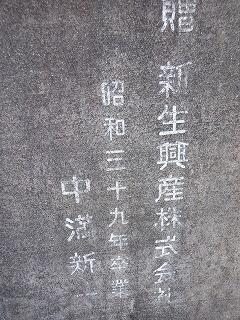 贈 新生興産株式会社
昭和三十九年卒業
中満新一